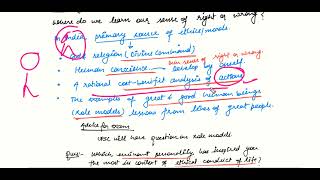 Where do we learn our sense of right or wrong?
• primary source of ethics/morals.
• religion (Divine command)
own sense of right or wrong.
• Human conscience – develop by oneself.
• A rational cost-benefit analysis of actions
• The examples of great & good human beings
(Role models) lessons from lives of great people.
Advice for exams
UPSC will have question on role models
Ques- Which eminent personality has inspired you
the most in context of ethical conduct of life?